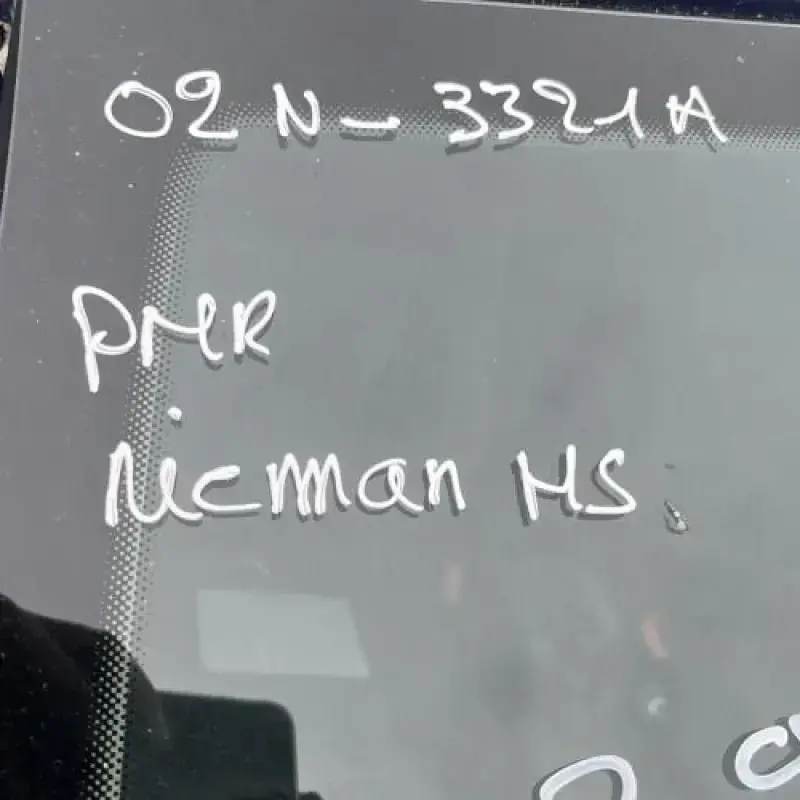 02N-3321A
PMR
Nicman MS